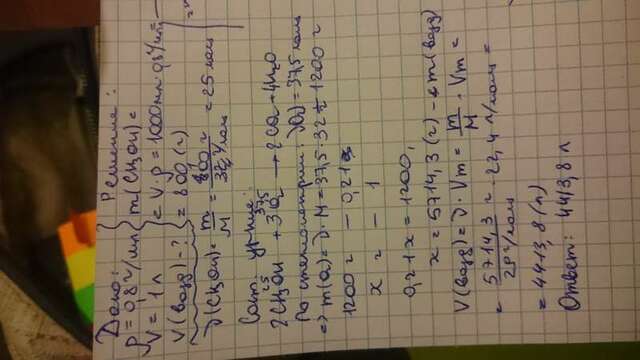 Дано: Решение:
ρ = 0,8 г/мл m(CH3OH) =
V = 1 л = V·ρ = 1000 мл · 0,8 г/мл =
V(возд) - ? = 800 (г)
ν(CH3OH) = m/M = 800 г / 32 г/моль = 25 моль
Сост. ур-ние:
25 37,5
2CH3OH + 3O2 → 2CO2 + 4H2O
По стехиометрии: ν(O2) = 37,5 моль
=> m(O2) = ν·M = 37,5·32 = 1200 г
1200 г — 0,21
x г — 1
0,21x = 1200,
x = 5714,3 (г) - m(возд)
V(возд) = ν·Vm = m/M · Vm =
= 5714,3 г / 29 г/моль · 22,4 л/моль =
= 4413,8 (л)
Ответ: 4413,8 л